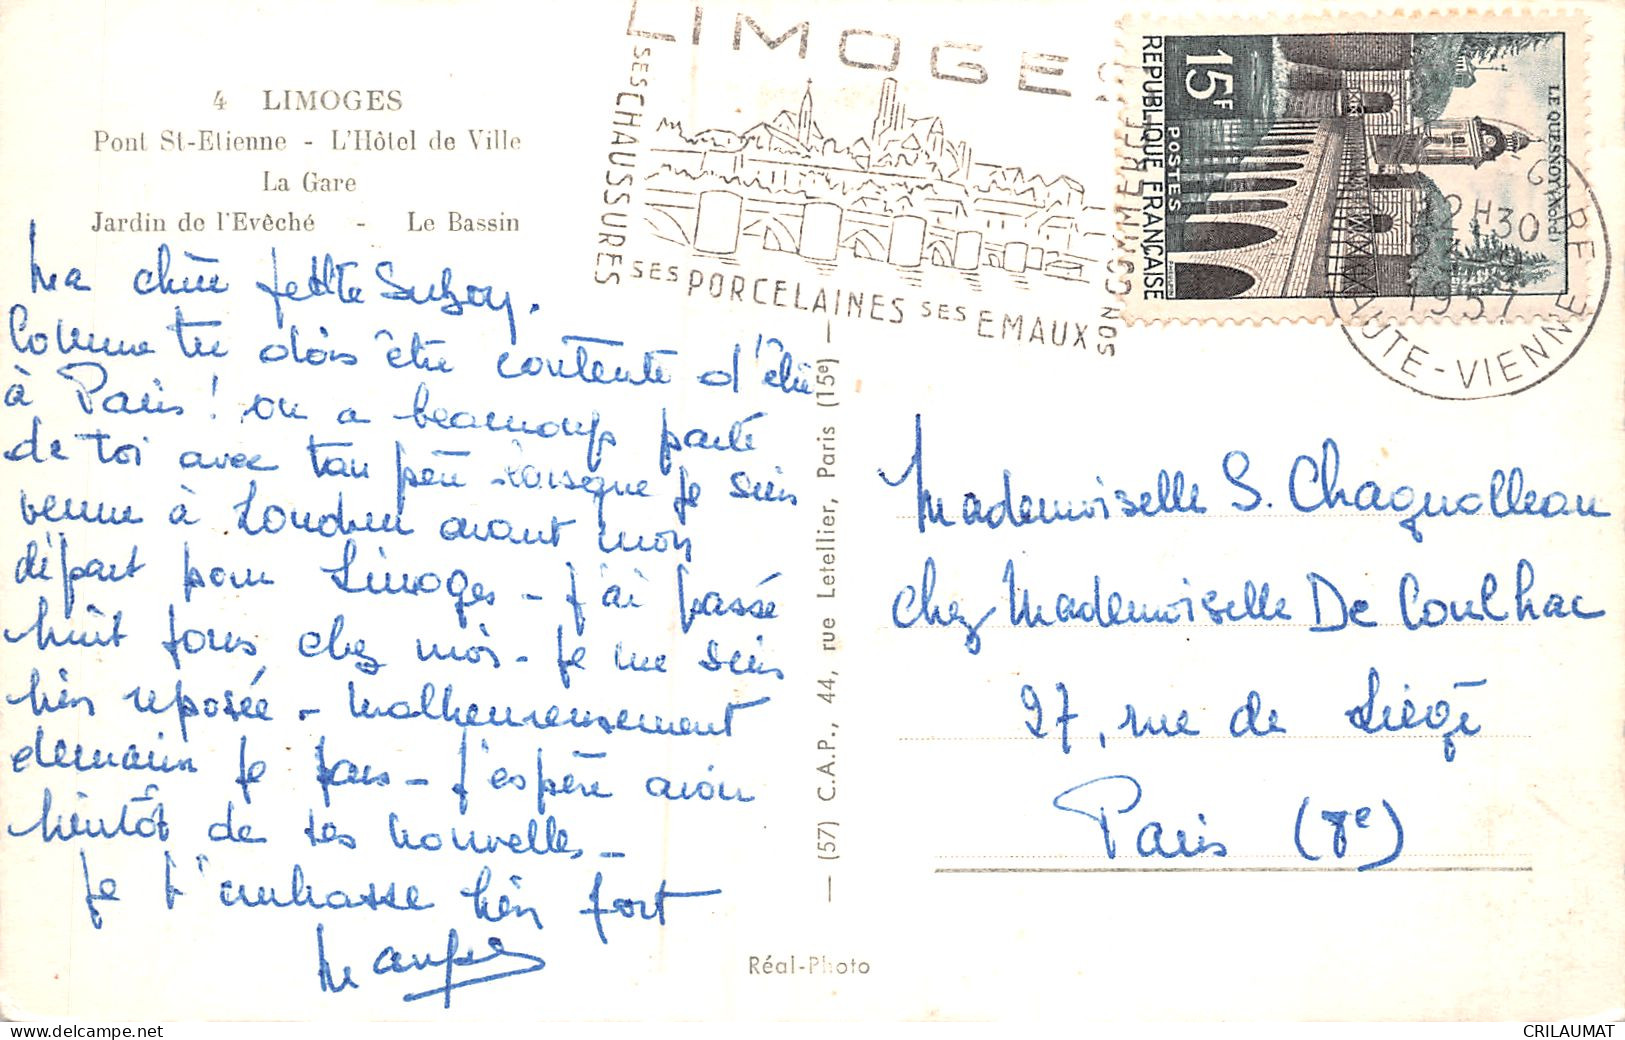 4 LIMOGES
Pont St-Etienne - L'Hôtel de Ville
La Gare
Jardin de l'Evêché - Le Bassin
Ma chère petite Suzon,
Comme tu dois être contente d'être
à Paris ! on a beaucoup parlé
de toi avec ton père lorsque je suis
venue à Loudun avant mon
départ pour Limoges - J'ai passé
huit jours chez moi - Je me suis
bien reposée - Malheureusement
demain je pars - J'espère avoir
bientôt de tes nouvelles -
Je t'embrasse bien fort
LIMOGES
SES CHAUSSURES
SES PORCELAINES SES EMAUX
SON COMMERCE
15F
POSTES
REPUBLIQUE FRANÇAISE
LE QUESNOY (Nord)
GARE
12H30
1957
HAUTE-VIENNE
(57) C.A.P., 44, rue Letellier, Paris (15e)
Réal-Photo
Mademoiselle S. Chagnolleau
chez Mademoiselle De Coulhac
27, rue de Liège
Paris (8e)
CRILAUMAT
https://www.delcampe.net